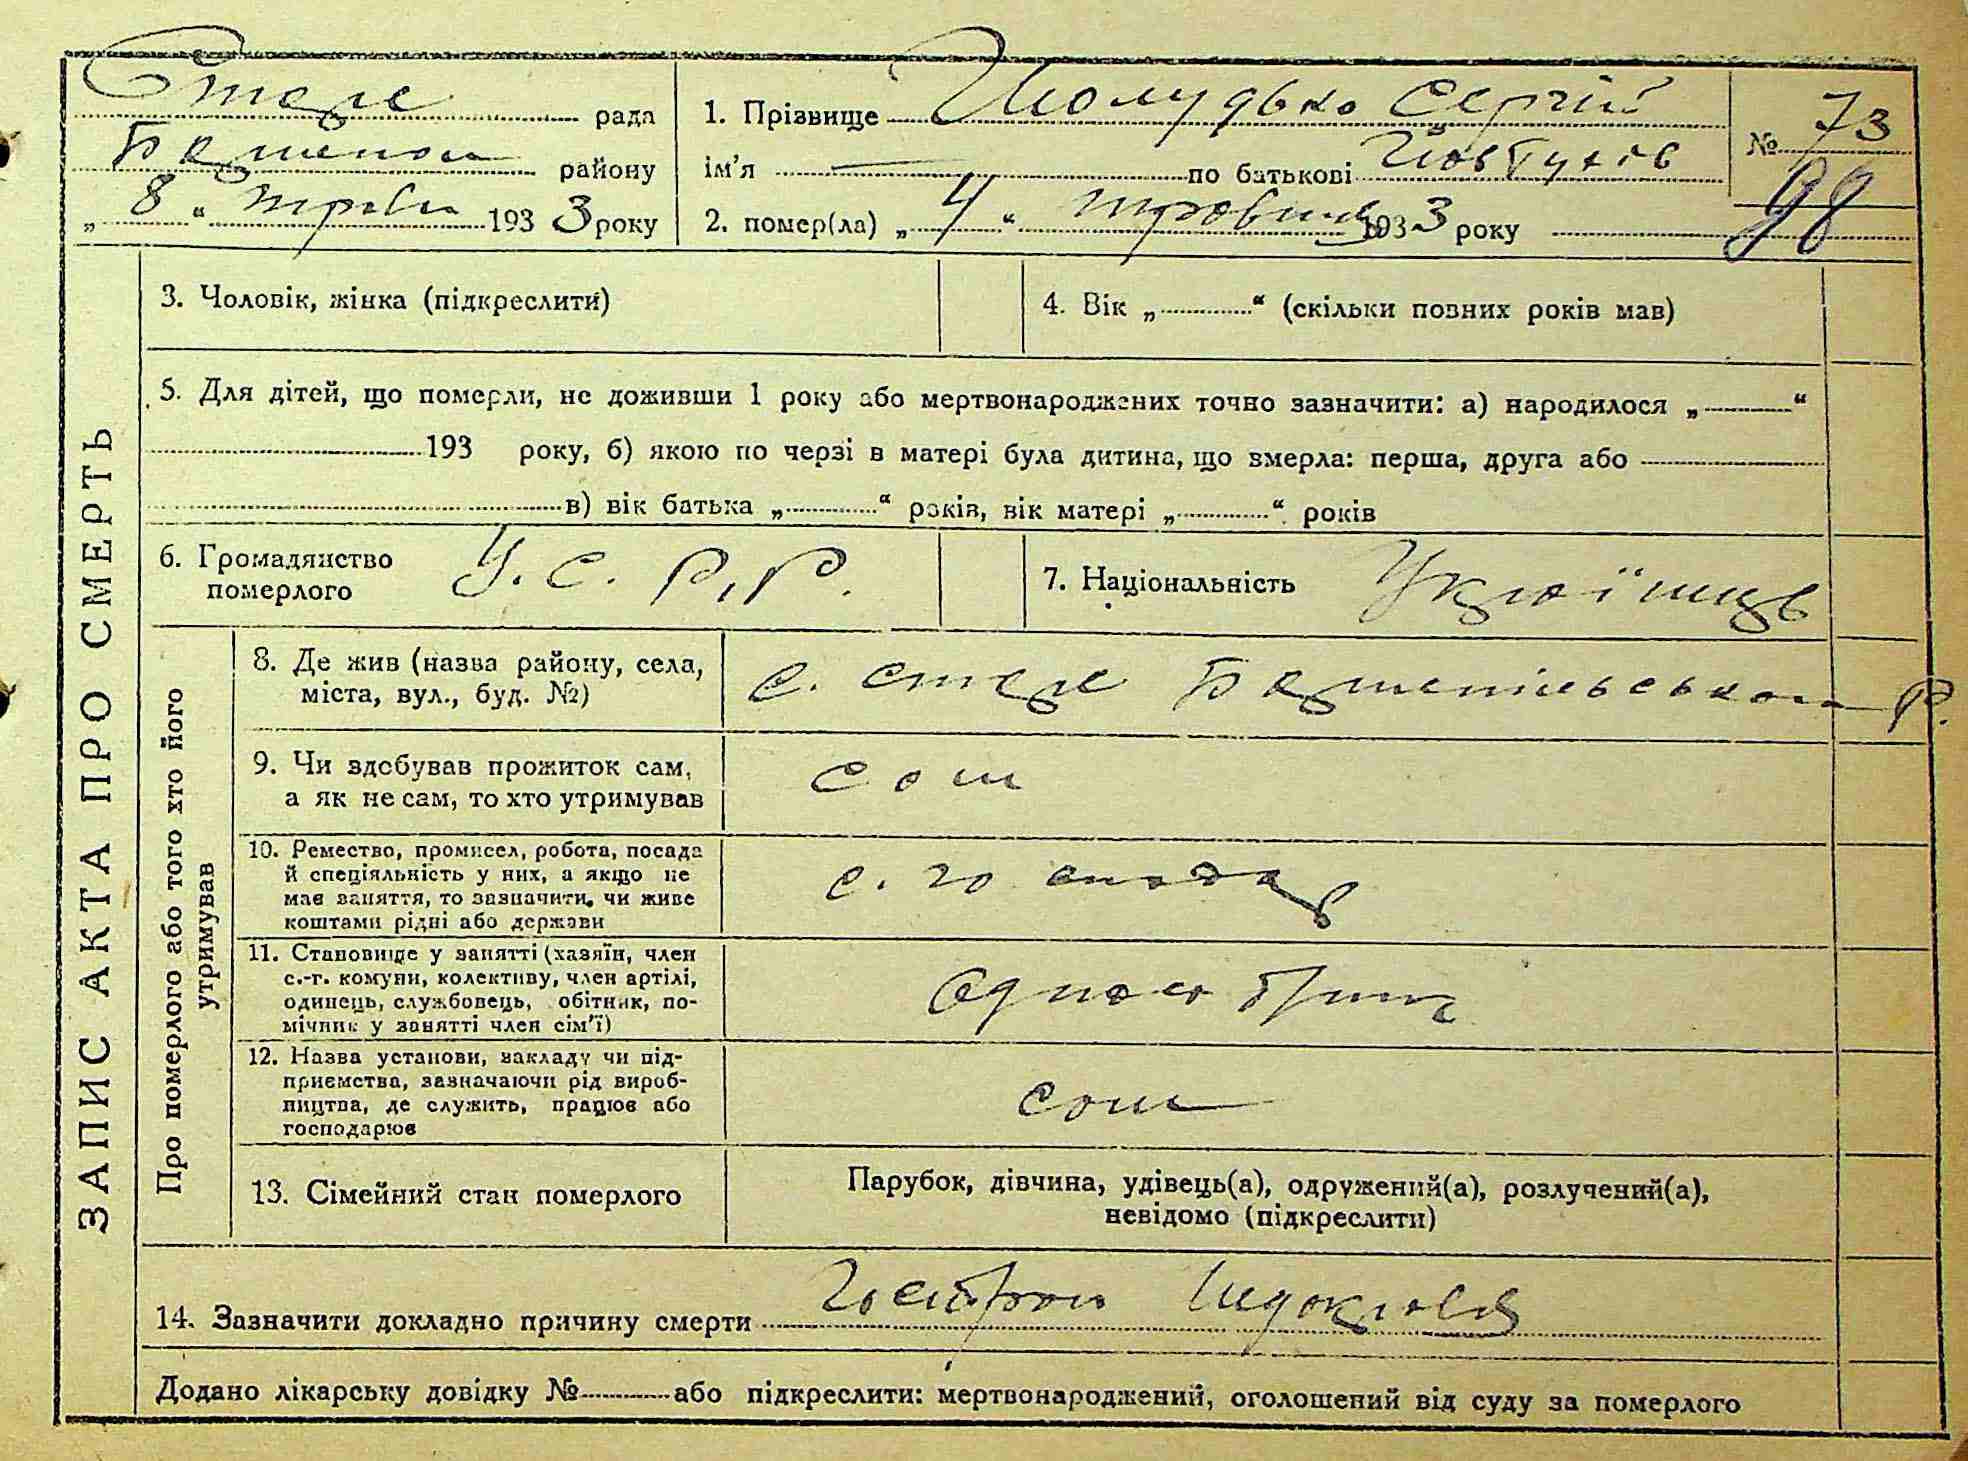 Старе рада
району
„ 8 “ травня 193 3 року
1. Прізвище Шолудько Сергій
ім'я — по батькові
2. помер(ла) „ 4 “ травня 193 3 року
№ 73
98
ЗАПИС АКТА ПРО СМЕРТЬ
3. Чоловік, жінка (підкреслити)
4. Вік „ “ (скільки повних років мав)
5. Для дітей, що померли, не доживши 1 року або мертвонароджених точно зазначити: а) народилося „ “
193 року, б) якою по черзі в матері була дитина, що вмерла: перша, друга або
в) вік батька „ “ років, вік матері „ “ років
6. Громадянство
померлого
У. С. Р. Р.
7. Національність Українець
Про померлого або того хто його
утримував
8. Де жив (назва району, села,
міста, вул., буд. №)
с. Старе Р.
9. Чи здобував прожиток сам,
а як не сам, то хто утримував
сам
10. Ремество, промисел, робота, посада
й спеціяльність у них, а якщо не
має заняття, то зазначити, чи живе
коштами рідні або держави
с. господар
11. Становище у занятті (хазяїн, член
с.-г. комуни, колективу, член артілі,
одинець, службовець, обітник, по-
мічник у занятті член сім'ї)
12. Назва установи, закладу чи під-
приємства, зазначаючи рід вироб-
ництва, де служить, працює або
господарює
сам
13. Сімейний стан померлого
Парубок, дівчина, удівець(а), одружений(а), розлучений(а),
невідомо (підкреслити)
14. Зазначити докладно причину смерти
Додано лікарську довідку № або підкреслити: мертвонароджений, оголошений від суду за померлого